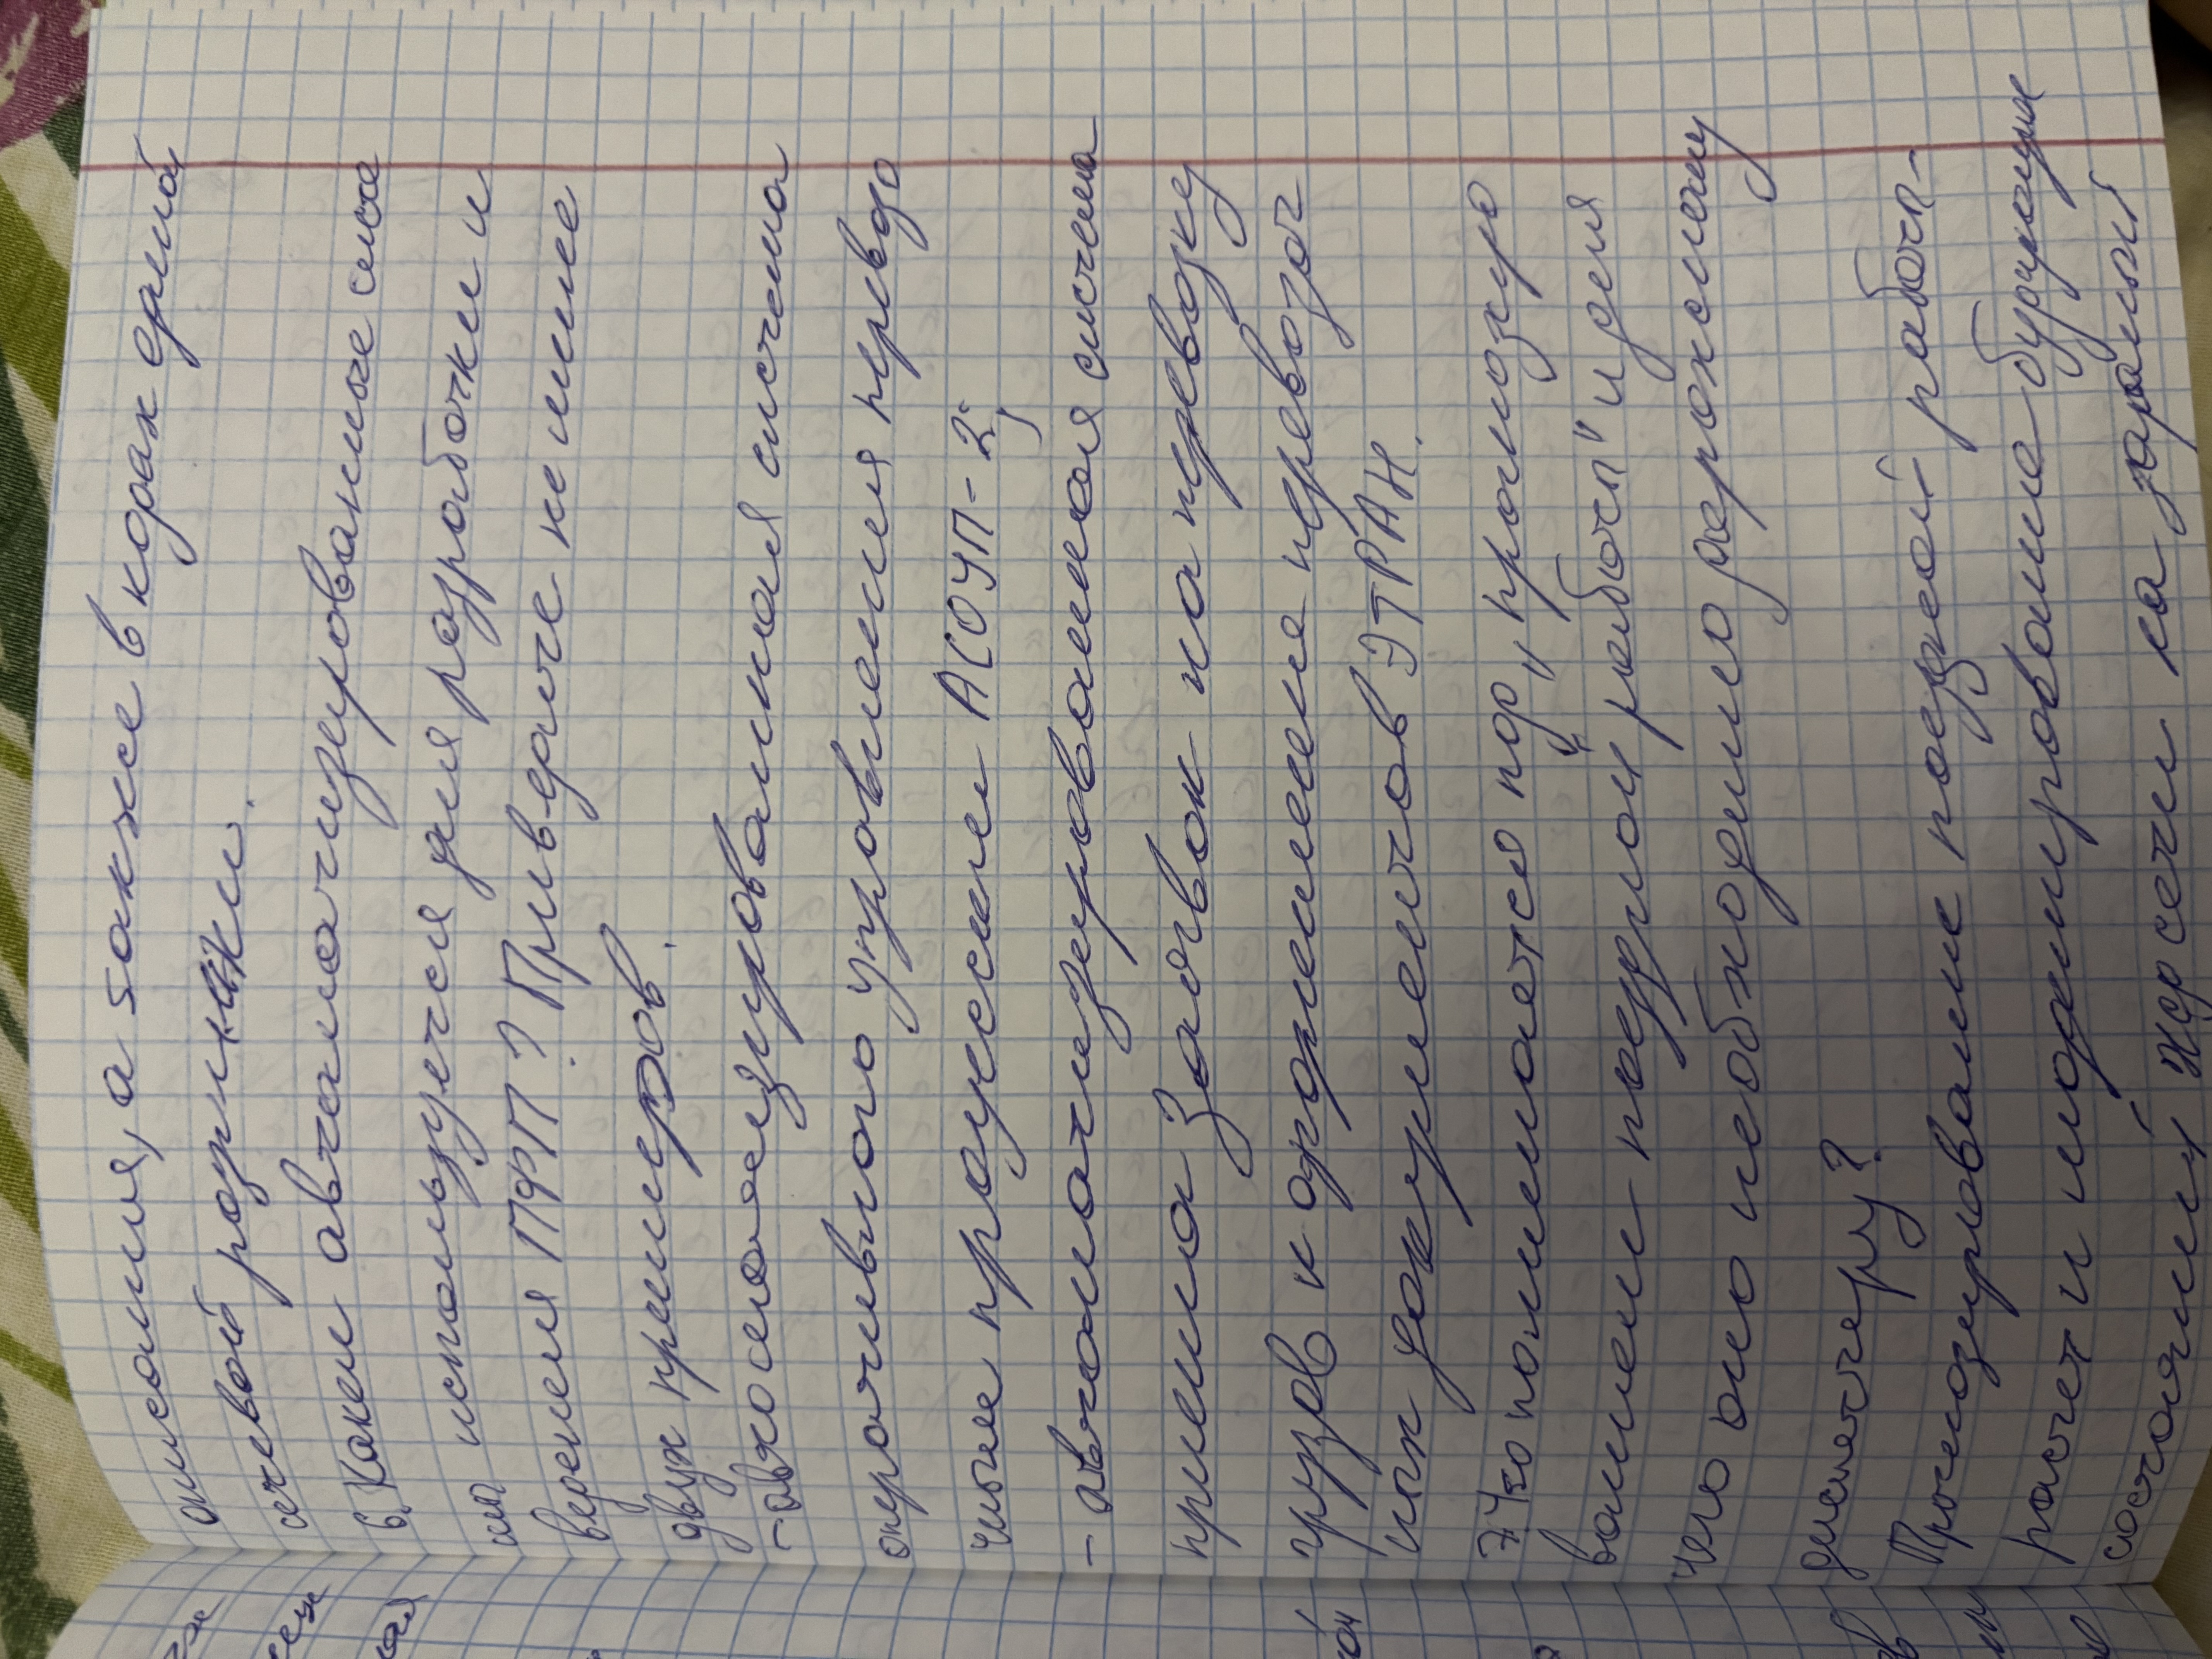 описания, а также в кодах единой
сетевой разметки.
6. Какие автоматизированные систе
мы используется для разработки и
ведения ПФП? Приведите не менее
двух примеров.
- автоматизированная система
оперативного управления перевоз
чными процессами АСОУП-2;
- автоматизированная система
приема заявок на перевозку
грузов и оформления перевозоч
ных документов ЭТРАН.
7 Что понимается под "прогнозиро
ванием поездной работы" и для
чего оно необходимо дорожному
диспетчеру?
Прогнозирование поездной работы -
расчет и моделирование будущих
состояний ЖД сети на заранный